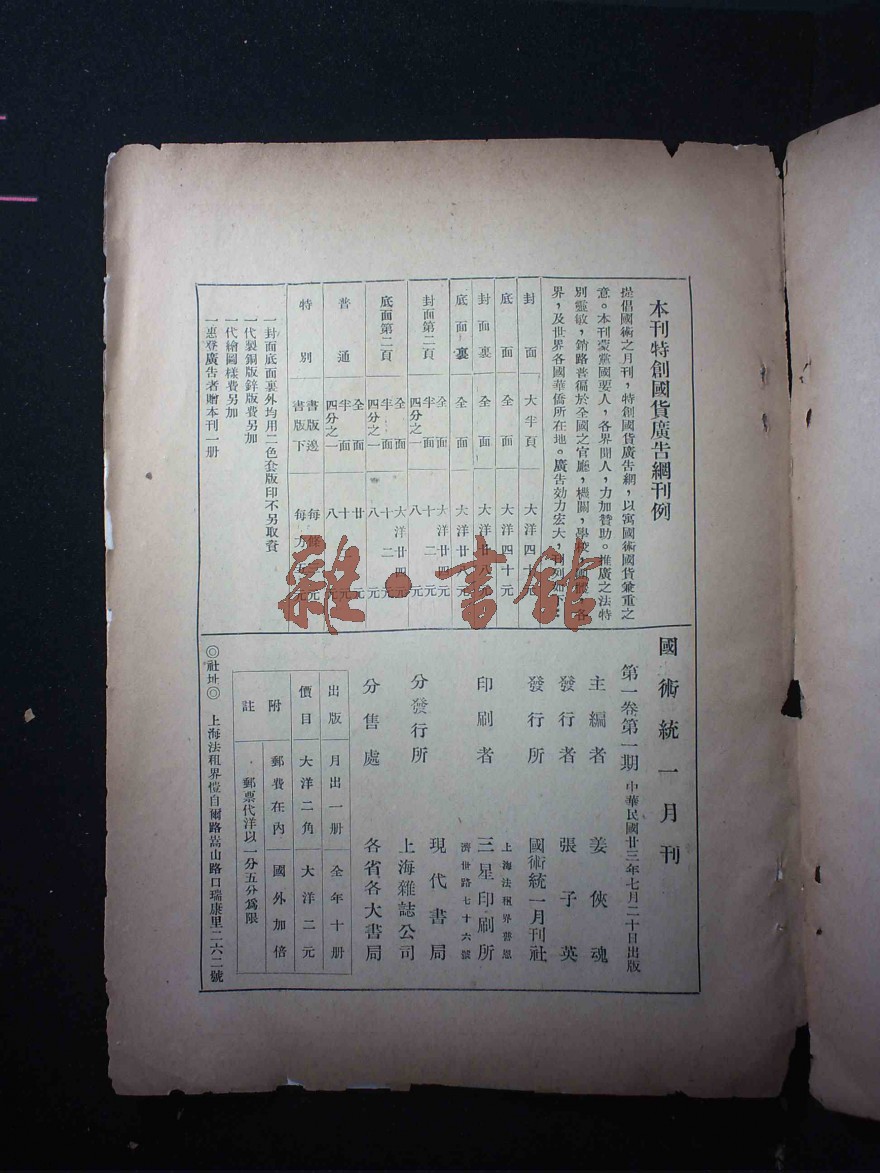 本刊特創國貨廣告網刊例
提倡國術之月刊，特創國貨廣告網，以寓國術國貨兼重之
意。本刊蒙黨國要人，各界聞人，力加贊助。推廣之法特
別靈敏，銷路普徧於全國之官廳，機關，學校，團體，各
界，及世界各國華僑所在地。廣告効力宏大，刊列如下：
封面 大半頁 大洋四十元
底面 全面 大洋四十元
封面裏 全面 大洋廿八元
底面裏 全面 大洋廿八元
封面第二頁 全面 大洋廿四元
半面 十二元
四分之一 八元
底面第二頁 全面 大洋廿四元
半面 十二元
四分之一 八元
普通 全面 廿元
半面 十元
四分之一 八元
特別 書版邊 每條 元
書版下 每方五元
一封面底面裏外均用二色套版印不另取資
一代製銅版鋅版費另加
一代繪圖樣費另加
一惠登廣告者贈本刊一册
國術統一月刊
第一卷第一期 中華民國廿三年七月二十日出版
主編者 姜俠魂
發行者 張子英
發行所 國術統一月刊社
印刷者 上海法租界普恩
濟世路七十六號
三星印刷所
分發行所 現代書局
上海雜誌公司
分售處 各省各大書局
出版 月出一册 全年十册
價目 大洋二角 大洋二元
附註 郵費在內 國外加倍
郵票代洋以一分五分爲限
◎社址◎ 上海法租界愷自爾路嵩山路口瑞康里二六二號
雜·書館